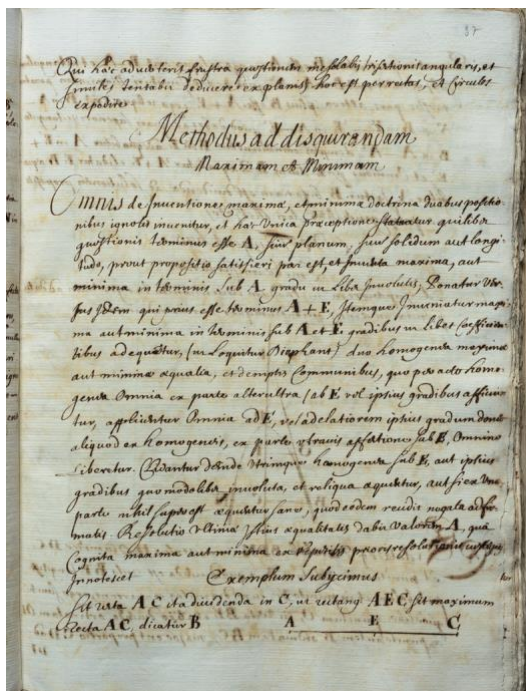 37
Qui hæc adverterit frustra quæstiones mesolabij, trisectionis angularis, et
similes tentabit deducere ex planis, hoc est per rectas, et Circulos
expedire
Methodus ad disquirendam
Maximam et Minimam
Omnis de Inventione maximæ, et minimæ doctrina duabus positio
nibus ignotis invenitur, et hac Unica præceptione statuatur quilibet
quæstionis terminus esse A, sive planum, sive solidum aut longi
tudo, prout proposito satisfieri par est, et Inventa maxima, aut
minima in terminis sub A gradu ut libet Involutis, Ponatur
idem qui prius esse terminus A + E, Iterumque Inveniatur maxi
ma aut minima in terminis sub A et E gradibus ut libet Coefficien
tibus adequentur, (ut Loquitur Diophant) duo homogenea maximæ
aut minimæ æqualia, et demptis Communibus, quo peracto homo
genea Omnia ex parte alterutra sub E vel ipsius gradibus afficiun
tur, applicentur Omnia ad E, vel ad elatiorem ipsius gradum donec
aliquod ex homogeneis, ex parte utravis affectione sub E, Omnino
liberetur. Elidantur deinde Utrimque homogenea sub E, aut ipsius
gradibus quomodolibet involuta, et reliqua æquentur, aut si ex Una
parte nihil superest æquentur sane, quod eodem recidit negata adfir
matis. Resolutio Ultima Istius æqualitatis dabit valorem A, qua
Cognita maxima aut minima ex prioris resolutionis
Innotescet Exemplum Subijcimus
Sit recta AC ita dividenda in C, ut rectang AEC sit maximum
Recta AC, dicatur B A E C